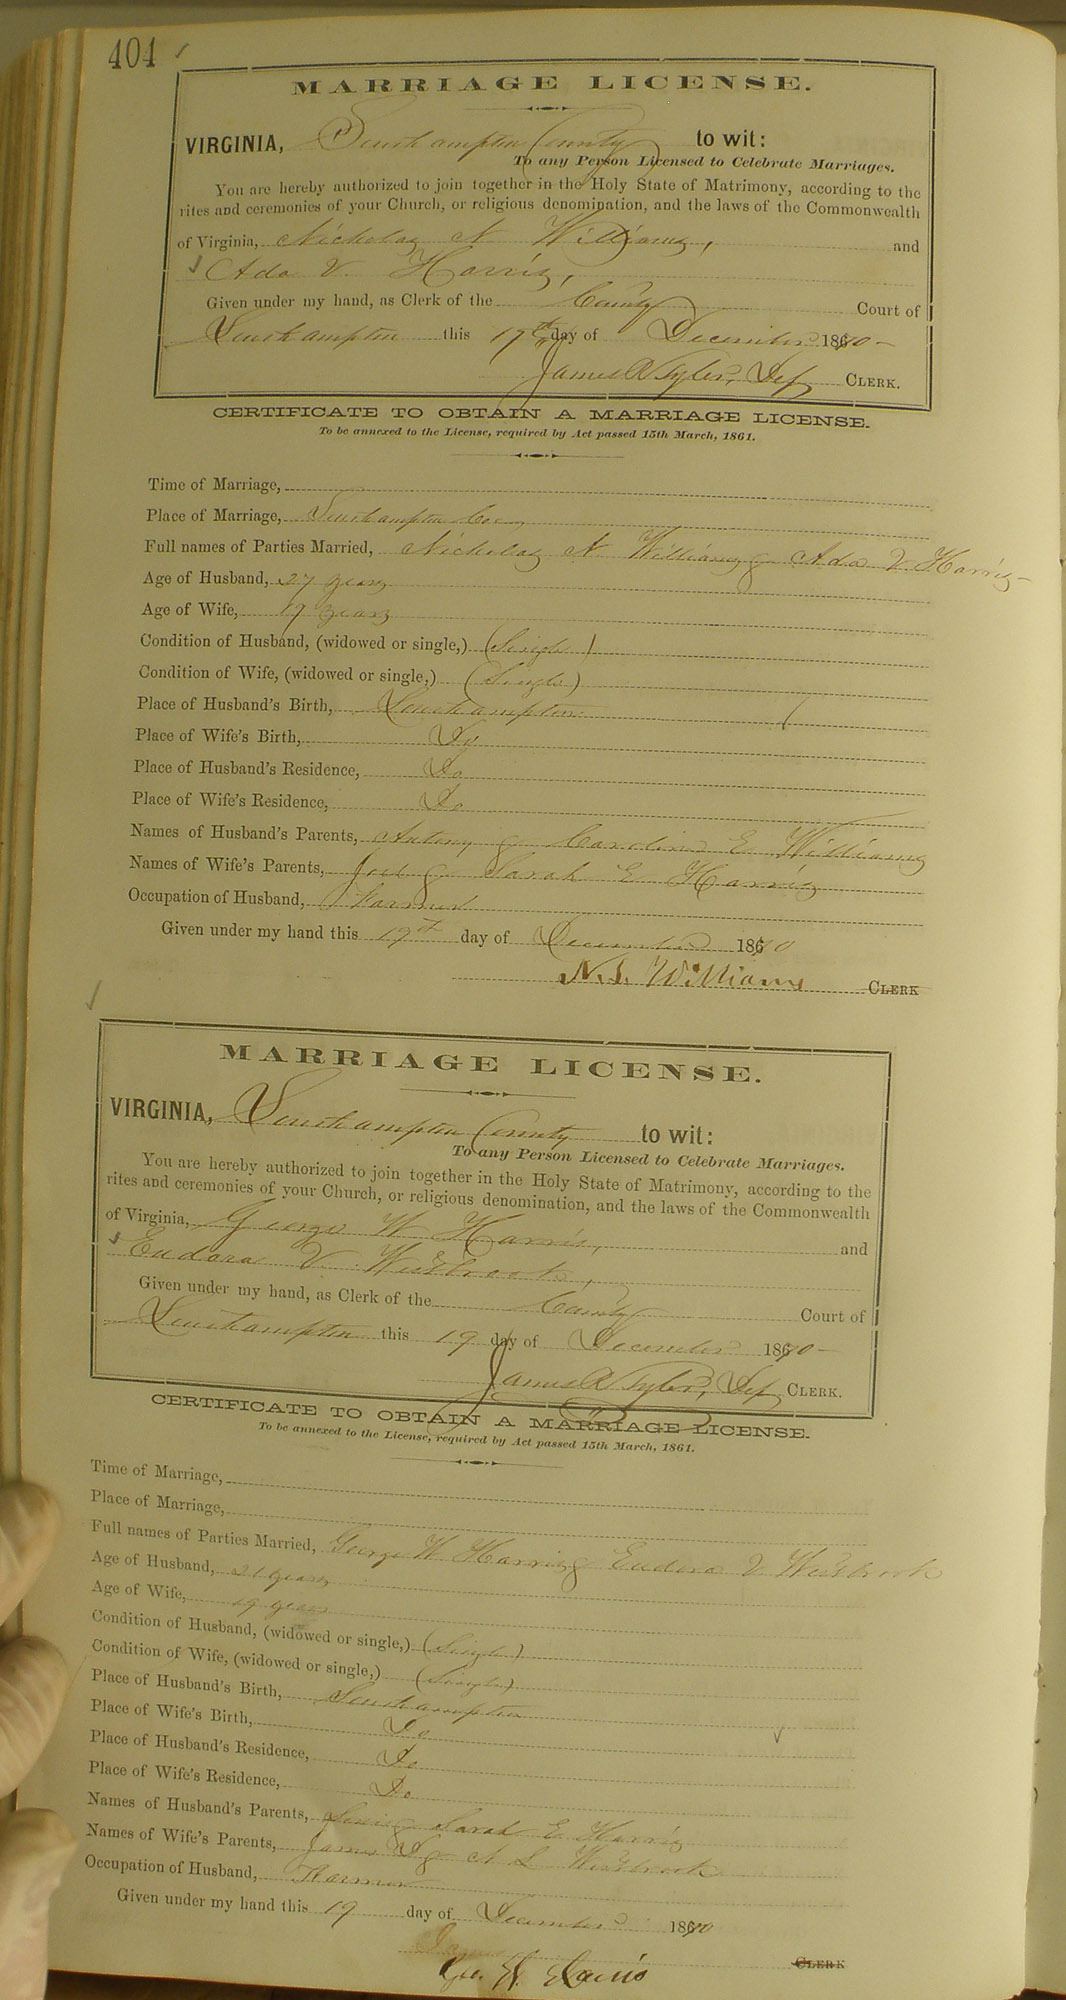 404
MARRIAGE LICENSE.
VIRGINIA, Southampton County to wit:
To any Person Licensed to Celebrate Marriages.
You are hereby authorized to join together in the Holy State of Matrimony, according to the
rites and ceremonies of your Church, or religious denomination, and the laws of the Commonwealth
of Virginia, Nicholas N Williams, and
Ada V. Harris,
Given under my hand, as Clerk of the County Court of
Southampton this 17th day of December 1870
James R Tyler, Def CLERK.
CERTIFICATE TO OBTAIN A MARRIAGE LICENSE.
To be annexed to the License, required by Act passed 15th March, 1861.
Time of Marriage,
Place of Marriage, Southampton Co
Full names of Parties Married, Nicholas N Williams & Ada V Harris
Age of Husband, 27 years
Age of Wife, 19 years
Condition of Husband, (widowed or single,) (Single)
Condition of Wife, (widowed or single,) (Single)
Place of Husband's Birth, Southampton
Place of Wife's Birth, Do
Place of Husband's Residence, Do
Place of Wife's Residence, Do
Names of Husband's Parents, & Caroline E Williams
Names of Wife's Parents, Joel & Sarah E Harris
Occupation of Husband, Farmer
Given under my hand this 19th day of December 1870
Williams CLERK
MARRIAGE LICENSE.
VIRGINIA, Southampton County to wit:
To any Person Licensed to Celebrate Marriages.
You are hereby authorized to join together in the Holy State of Matrimony, according to the
rites and ceremonies of your Church, or religious denomination, and the laws of the Commonwealth
of Virginia, George W Harris, and
Eudora V. Westbrook,
Given under my hand, as Clerk of the County Court of
Southampton this 19 day of December 1870
James R Tyler, Def CLERK.
CERTIFICATE TO OBTAIN A MARRIAGE LICENSE.
To be annexed to the License, required by Act passed 15th March, 1861.
Time of Marriage,
Place of Marriage,
Full names of Parties Married, George W Harris & Eudora V Westbrook
Age of Husband, 21 years
Age of Wife, 19 years
Condition of Husband, (widowed or single,) (Single)
Condition of Wife, (widowed or single,) (Single)
Place of Husband's Birth, Southampton
Place of Wife's Birth, Do
Place of Husband's Residence, Do
Place of Wife's Residence, Do
Names of Husband's Parents, & Sarah E Harris
Names of Wife's Parents, James & Westbrook
Occupation of Husband, Farmer
Given under my hand this 19 day of December 1870
Geo. W. Harris CLERK